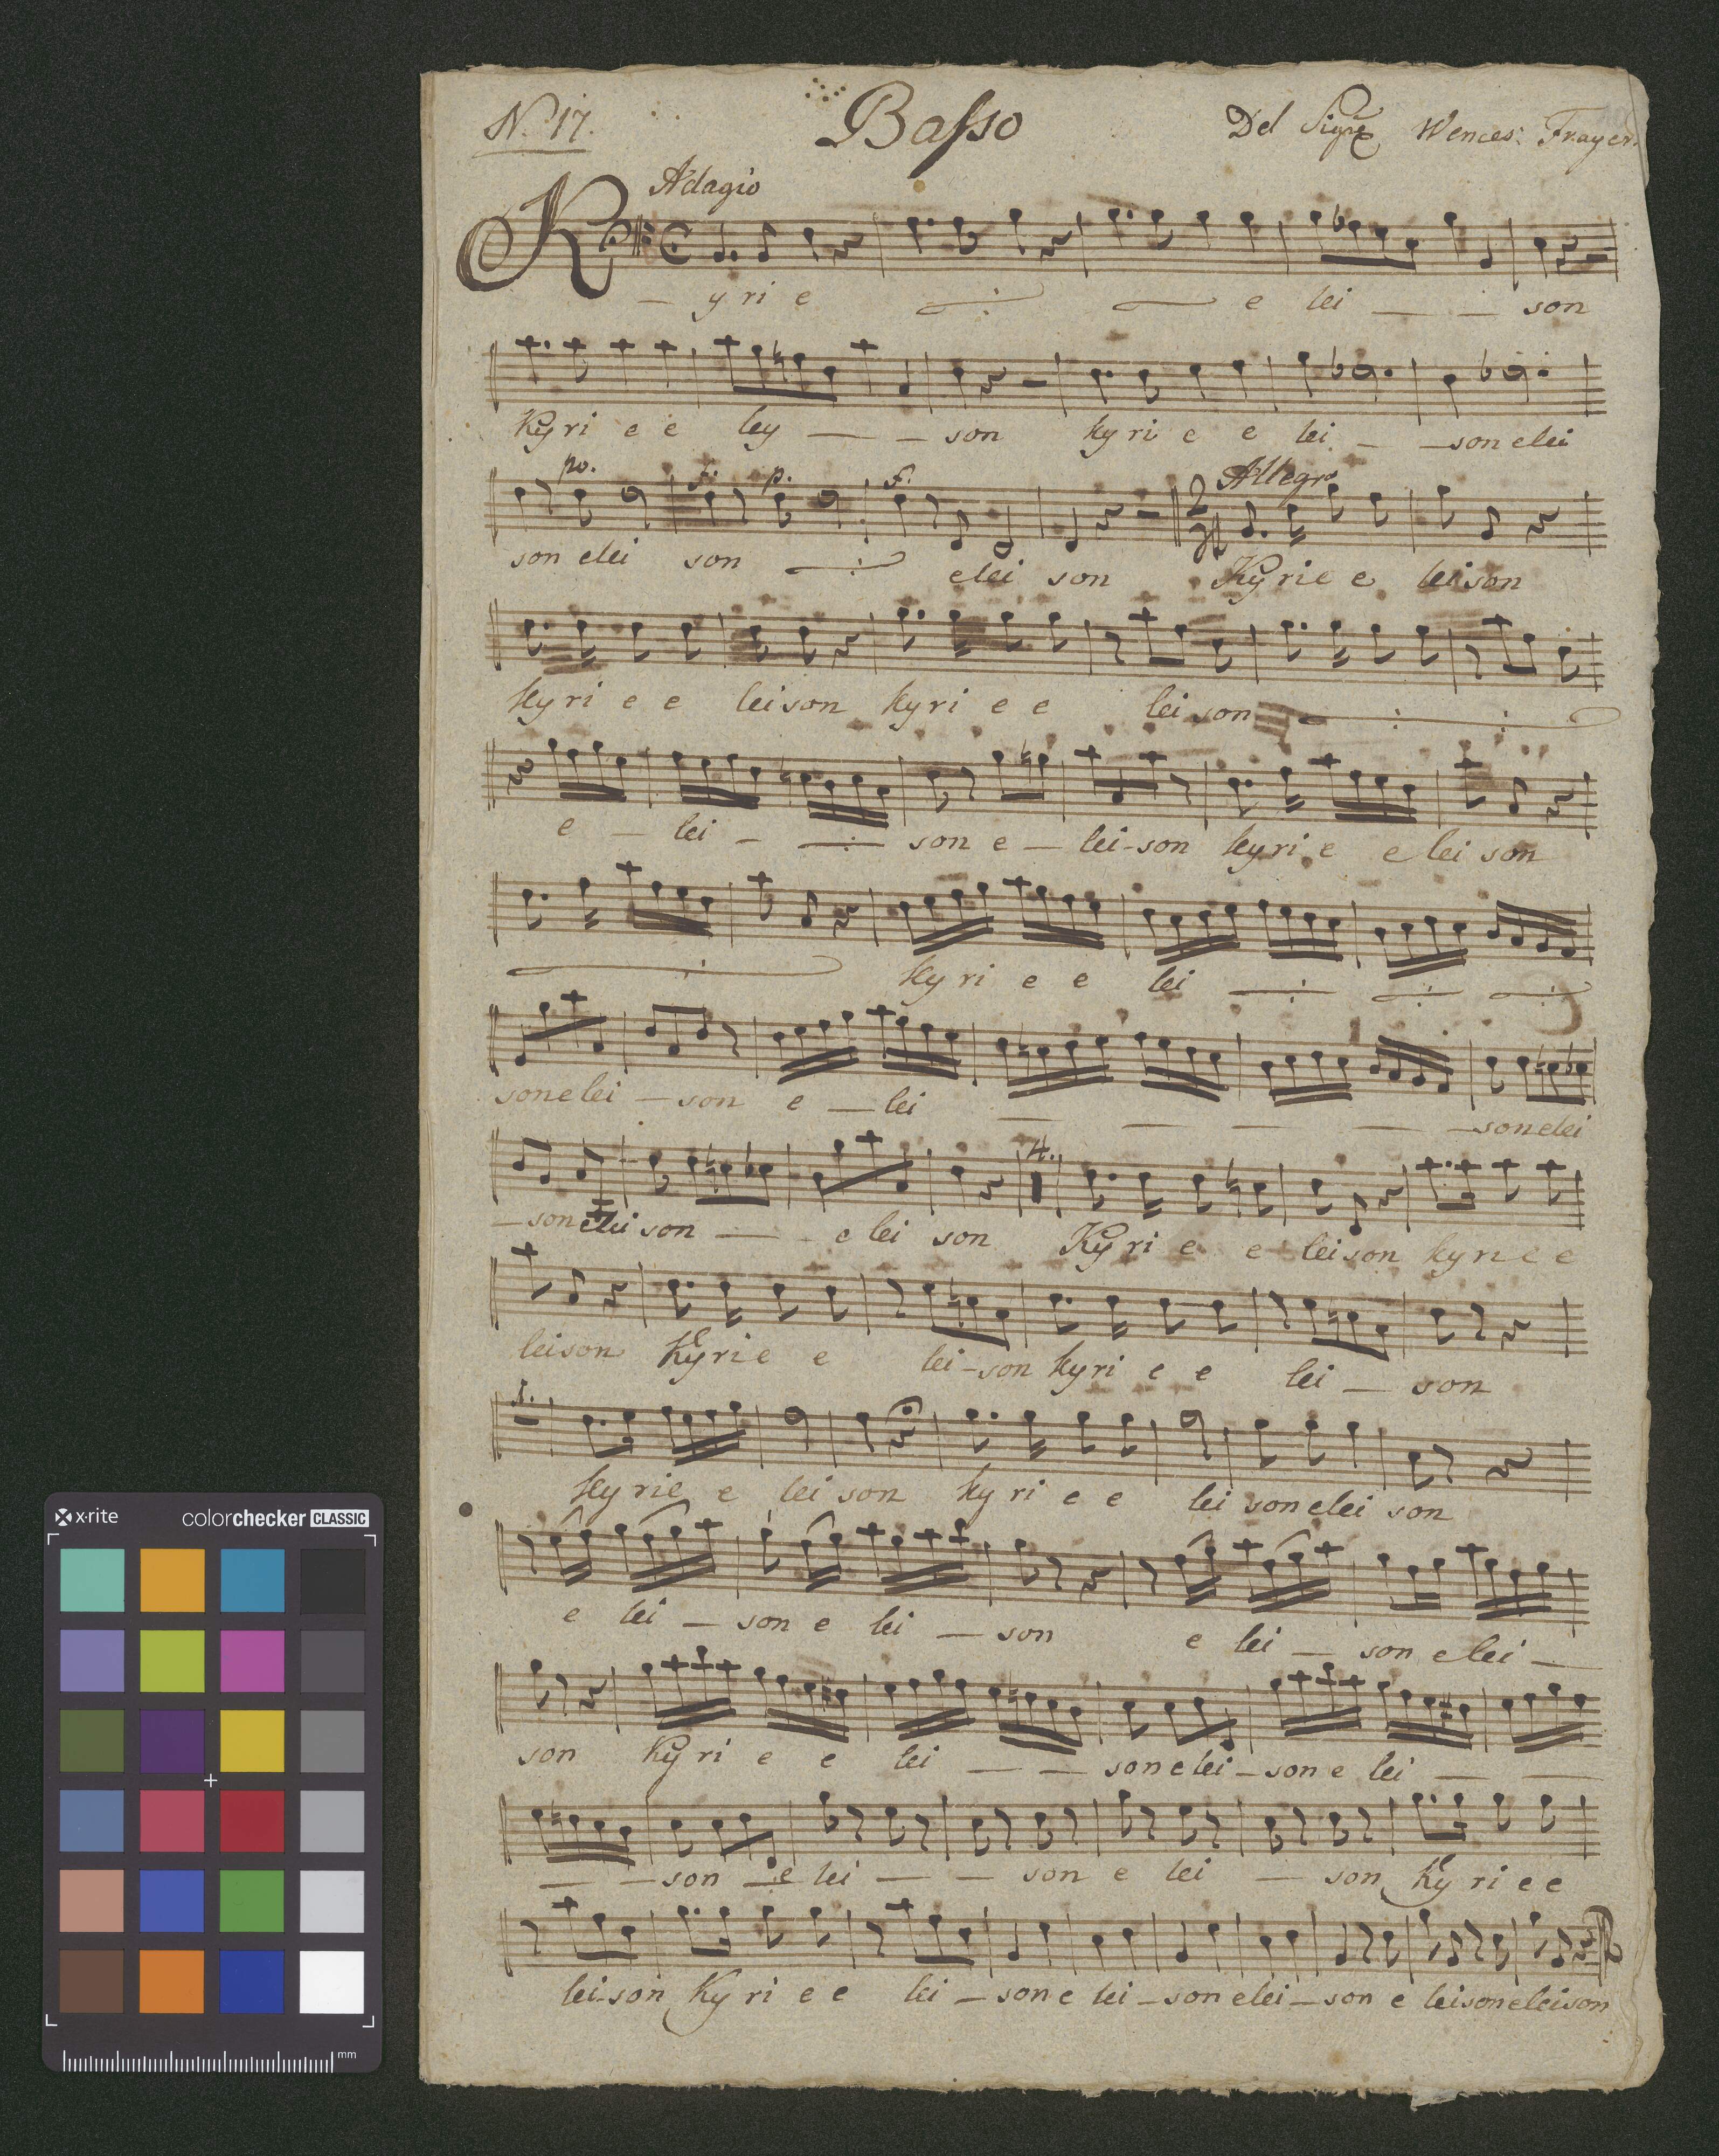 N. 17. Basso Del Sigre Wences: Frayer.
Adagio
Kyrie e lei son
Kyri e e ley son kyri e e lei son elei
po. f. p. f. Allegro
son elei son elei son Kyrie e leison
2/4
kyri e e leison kyri e e leison
e lei son e lei-son kyri e e lei son
kyri e e lei
son elei son e lei son elei
4.
son elei son e lei son Kyri e e leison kyrie e
leison Kyrie e lei-son kyri e e lei son
1.
kyrie e lei son kyri e e lei son elei son
e lei son e lei son e lei son elei
son Kyri e e lei son elei son e lei
son e lei son e lei son Kyri e e
lei-son Kyri e e lei son e lei son elei son e leison eleison
x·rite colorchecker CLASSIC
mm